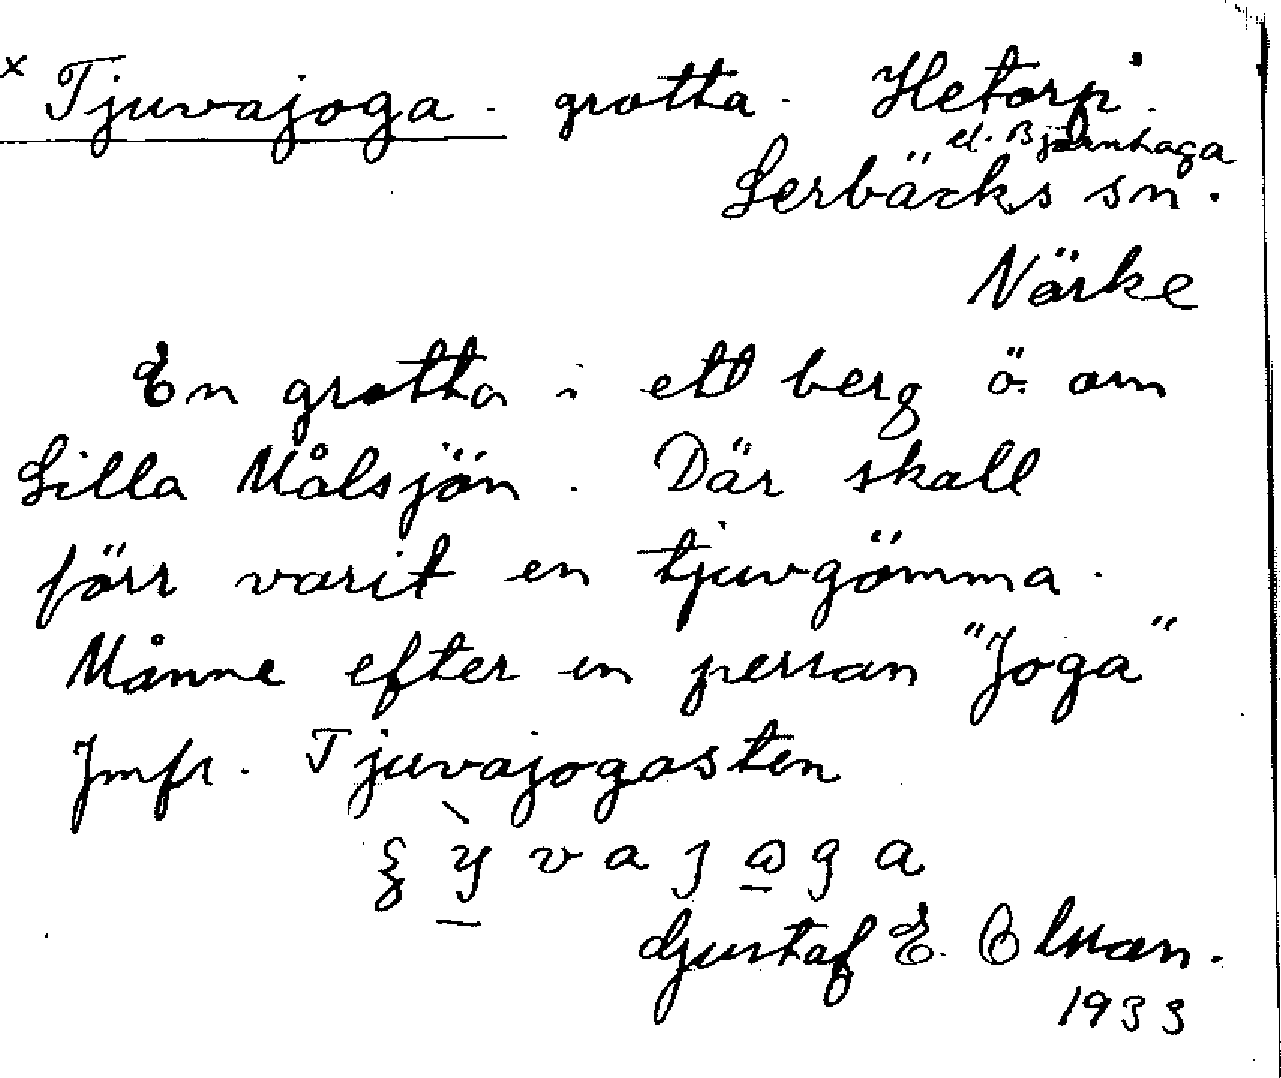 x Tjuvajoga. grotta. Hetorp.
el. Björnhaga
Lerbäcks sn.
Närke
En grotta i ett berg ö. om
Lilla Målsjön. Där skall
förr varit en tjuvgömma.
Månne efter en person "Joga"
Jmfr. Tjuvajogasten
Gustaf E. Olsson.
1933